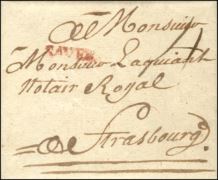 A Monsieur
Monsieur Laquiante
Notair Royal
de Strasbourg